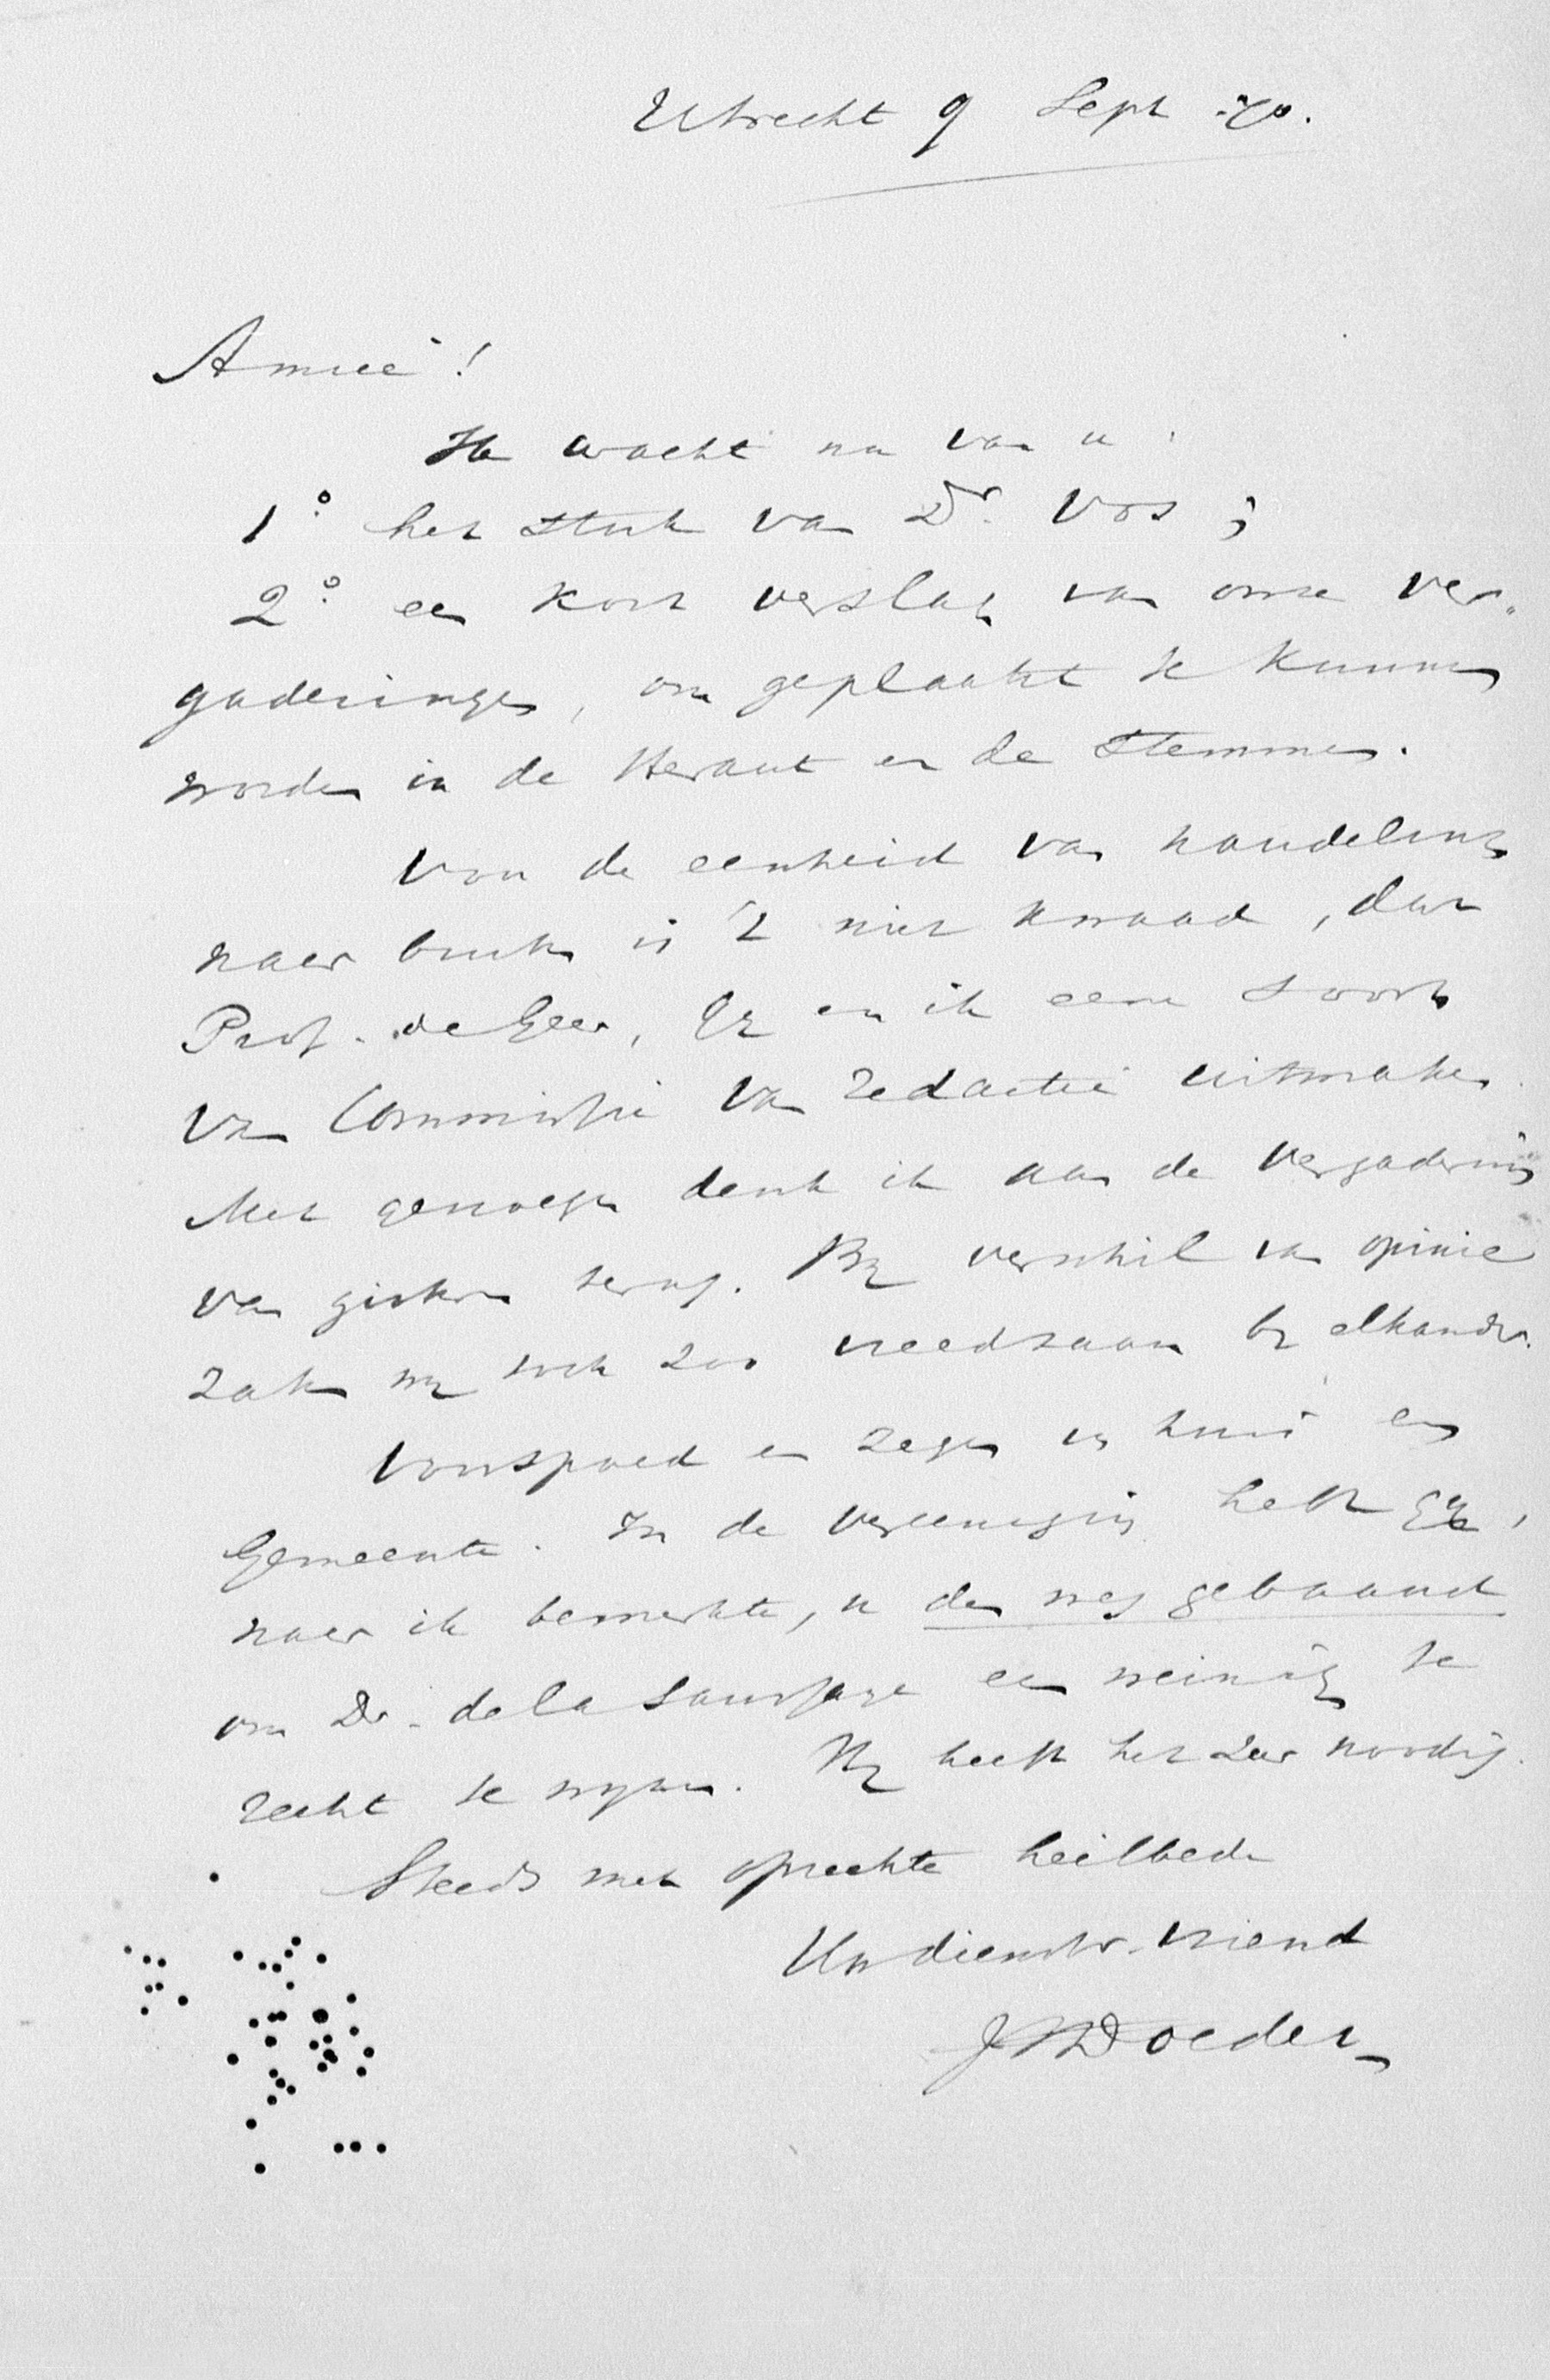 Utrecht 9 Sept. 70.
Amice!
Ik wacht nu van u:
1° het stuk van Dr. Vos;
2° een kort verslag van onze ver„
gaderingen, om geplaatst te kunnen
worden in de Heraut en de Stemmen.
Voor de eenheid van handeling
naar buiten is 't niet kwaad, dat
Prof. de Geer, Gij en ik eene soort
van Commissie van redactie uitmaken.
Met genoegen denk ik aan de vergadering
van gisteren terug. Bij verschil van opinie
zaten wij toch zoo vreedzaam bij elkander.
Voorspoed en zegen in huis en
Gemeente. In de Vereeniging hebt Gij,
naar ik bemerkte, u den weg gebaand
om Dr. de la Saussaye een weinig te
recht te wijzen. Hij heeft het zeer noodig.
Steeds met oprechte heilbede
Uw dienstv. vriend
JJDoedes